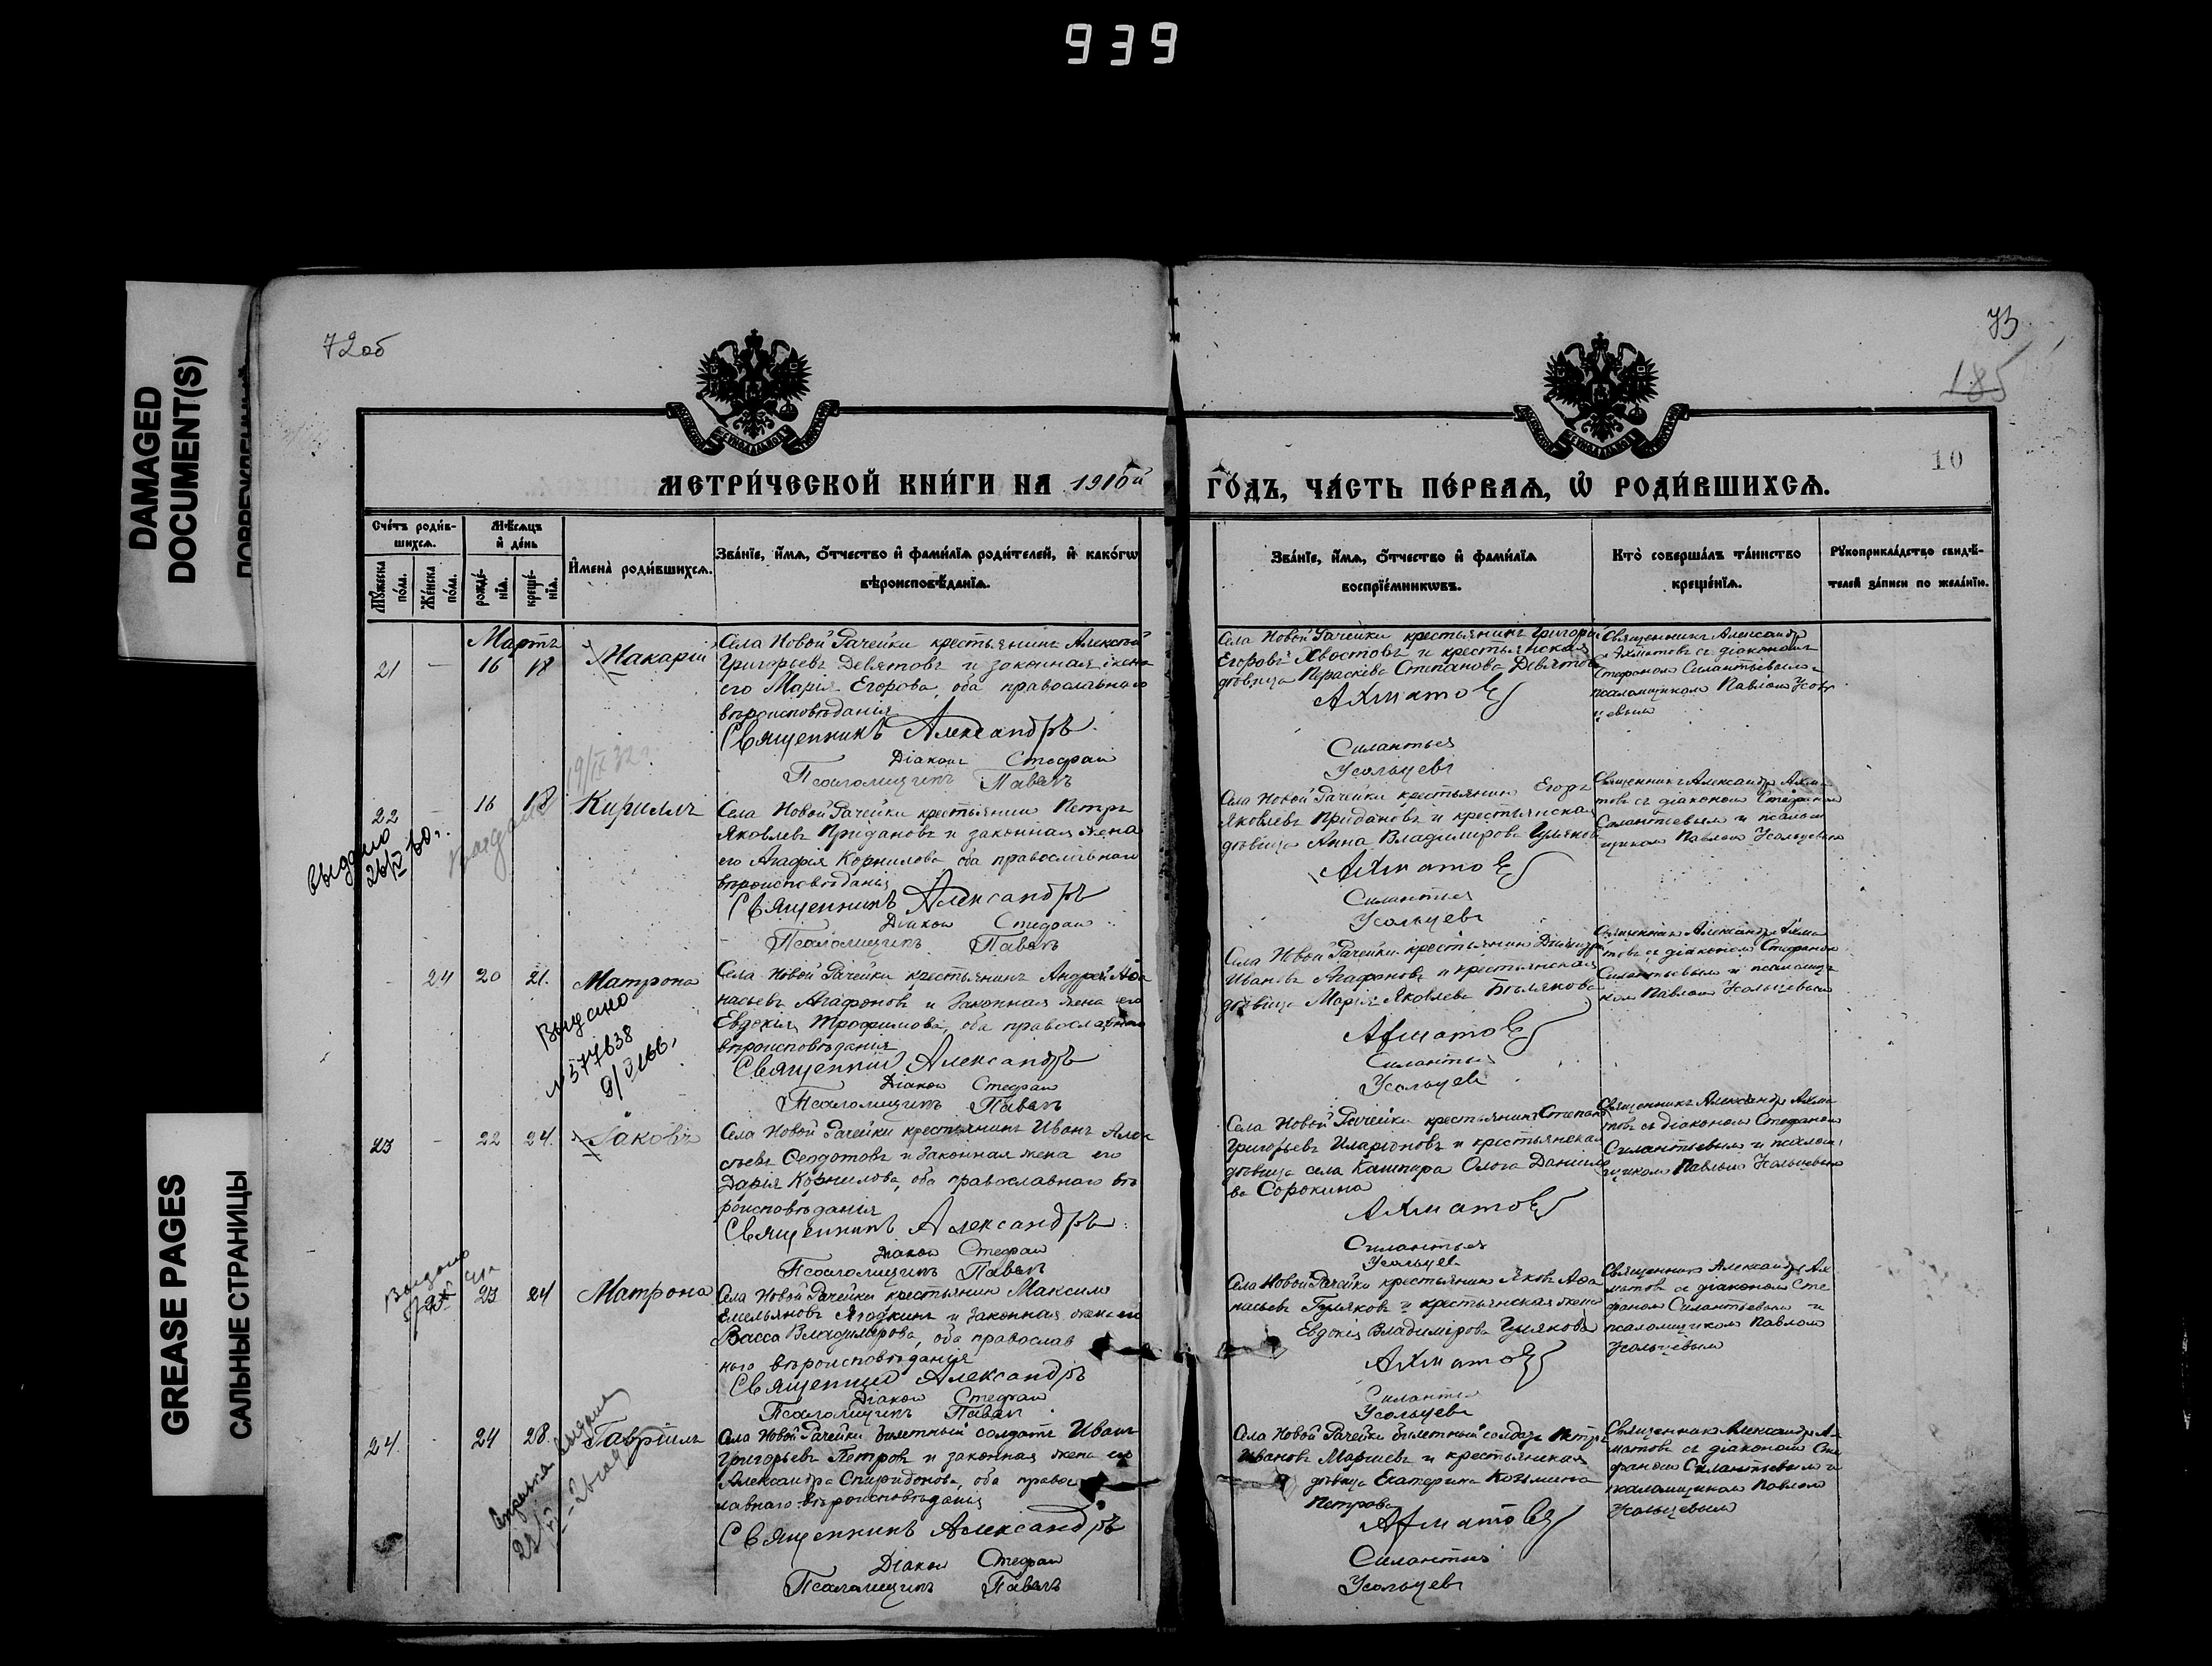 939
DAMAGED
DOCUMENT(S)
GREASE PAGES
САЛЬНЫЕ СТРАНИЦЫ
72 об
73
185
10
МЕТРИ́ЧЕСКОЙ КНИ́ГИ НА 1910й ГО́ДЪ, ЧА́СТЬ ПЕ́РВАѦ, Ѡ҆ РОДИ́ВШИХСѦ.
Сче́тъ роди́в-
шихсѧ.
Мꙋ́жеска по́ла.
Же́нска по́ла.
Мѣ́сѧцъ
и҆ де́нь
рожде́-нїѧ.
креще́-нїѧ.
И҆мена̀ роди́вшихсѧ.
Зва́нїе, и҆́мѧ, ѻ҆́тчество и҆ фами́лїѧ роди́телей, и҆ како́гѡ
вѣроисповѣ́данїѧ.
Зва́нїе, и҆́мѧ, ѻ҆́тчество и҆ фами́лїѧ
воспрїе́мникѡвъ.
Кто̀ соверша́лъ та́инство
креще́нїѧ.
Рꙋкоприкла́дство свидѣ́-
телей за́писи по жела́нїю.
Мартъ
21 – 16 18 Макарій
Села Новой Рачейки крестьянинъ Алексѣй
Григорьевъ Девятовъ и законная жена
его Марія Егорова, оба православнаго
вѣроисповѣданія
Священникъ Александръ
Діаконъ Стефанъ
Псаломщикъ Павелъ
Села Новой Рачейки крестьянинъ Григорій
Егоровъ Хвостовъ и крестьянская
дѣвица Параскева Степанова Девятова
Ахматовъ
Силантьев
Усольцевъ
Священникъ Александръ
Ахматовъ съ діакономъ
Стефаномъ Силантьевымъ и
псаломщикомъ Павломъ Усоль
цевымъ
22 – 16 18 Кириллъ
19/IX 32 г.
выдано
26/IV 60 г.
Села Новой Рачейки крестьянинъ Петръ
Яковлевъ Придановъ и законная жена
его Агафія Корнилова оба православнаго
вѣроисповѣданія
Священникъ Александръ
Діаконъ Стефанъ
Псаломщикъ Павелъ
Села Новой Рачейки крестьянинъ Егоръ
Яковлевъ Придановъ и крестьянская
дѣвица Анна Владимирова
Ахматовъ
Силантьев
Усольцевъ
Священникъ Александръ Ахма
товъ съ діакономъ Стефаномъ
Силантьевымъ и псалом
щикомъ Павломъ Усольцевымъ
– 24 20 21. Матрона
Выдано
№ 577638
9/V 66.
Села Новой Рачейки крестьянинъ Андрей Афа
насьевъ Агафоновъ и законная жена его
Евдокія Трофимова, оба православнаго
вѣроисповѣданія
Священникъ Александръ
Діаконъ Стефанъ
Псаломщикъ Павелъ
Села Новой Рачейки крестьянинъ Димитрій
Ивановъ Агафоновъ и крестьянская
дѣвица Марія Яковлева Бѣлякова
Ахматовъ
Силантьев
Усольцевъ
Священникъ Александръ Ахма
товъ съ діакономъ Стефаномъ
Силантьевымъ и псаломщи
комъ Павломъ Усольцевымъ
23 – 22 24. Іаковъ
Села Новой Рачейки крестьянинъ Иванъ
Федотовъ и законная жена его
Дарія Корнилова, оба православнаго вѣ
роисповѣданія
Священникъ Александръ
Діаконъ Стефанъ
Псаломщикъ Павелъ
Села Новой Рачейки крестьянинъ Степанъ
Григорьевъ Иларіоновъ и крестьянская
дѣвица села Кашпира Ольга Данило
ва Сорокина
Ахматовъ
Силантьев
Усольцевъ
Священникъ Александръ Ахма
товъ съ діакономъ Стефаномъ
Силантьевымъ и псалом
щикомъ Павломъ Усольцевымъ
Выдано
23 24 Матрона
Села Новой Рачейки крестьянинъ Максимъ
Емельяновъ Ягодкинъ и законная жена его
Васса Владимірова, оба православ
наго вѣроисповѣданія
Священникъ Александръ
Діаконъ Стефанъ
Псаломщикъ Павелъ
Села Новой Рачейки крестьянинъ Яковъ Афа
насьевъ и крестьянская жена
Евдокія Владимірова
Ахматовъ
Силантьев
Усольцевъ
Священникъ Александръ Ах
матовъ съ діакономъ Сте
фаномъ Силантьевымъ и
псаломщикомъ Павломъ
Усольцевымъ
24. 24 28. Гавріилъ
Справка выдана
Села Новой Рачейки билетный солдатъ Иванъ
Григорьевъ Петровъ и законная жена его
Александра Спиридонова, оба правос
лавнаго вѣроисповѣданія
Священникъ Александръ
Діаконъ Стефанъ
Псаломщикъ Павелъ
Села Новой Рачейки билетный солдатъ Петръ
Ивановъ и крестьянская
дѣвица Екатерина Козьмина
Петрова
Ахматовъ
Силантьев
Усольцевъ
Священникъ Александръ Ах
матовъ съ діакономъ Сте
фаномъ Силантьевымъ и
псаломщикомъ Павломъ
Усольцевымъ